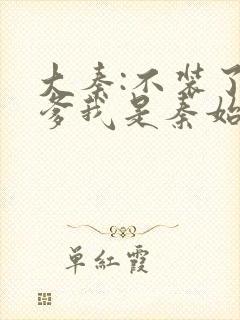 大秦:不装了
爹我是秦始
单红霞